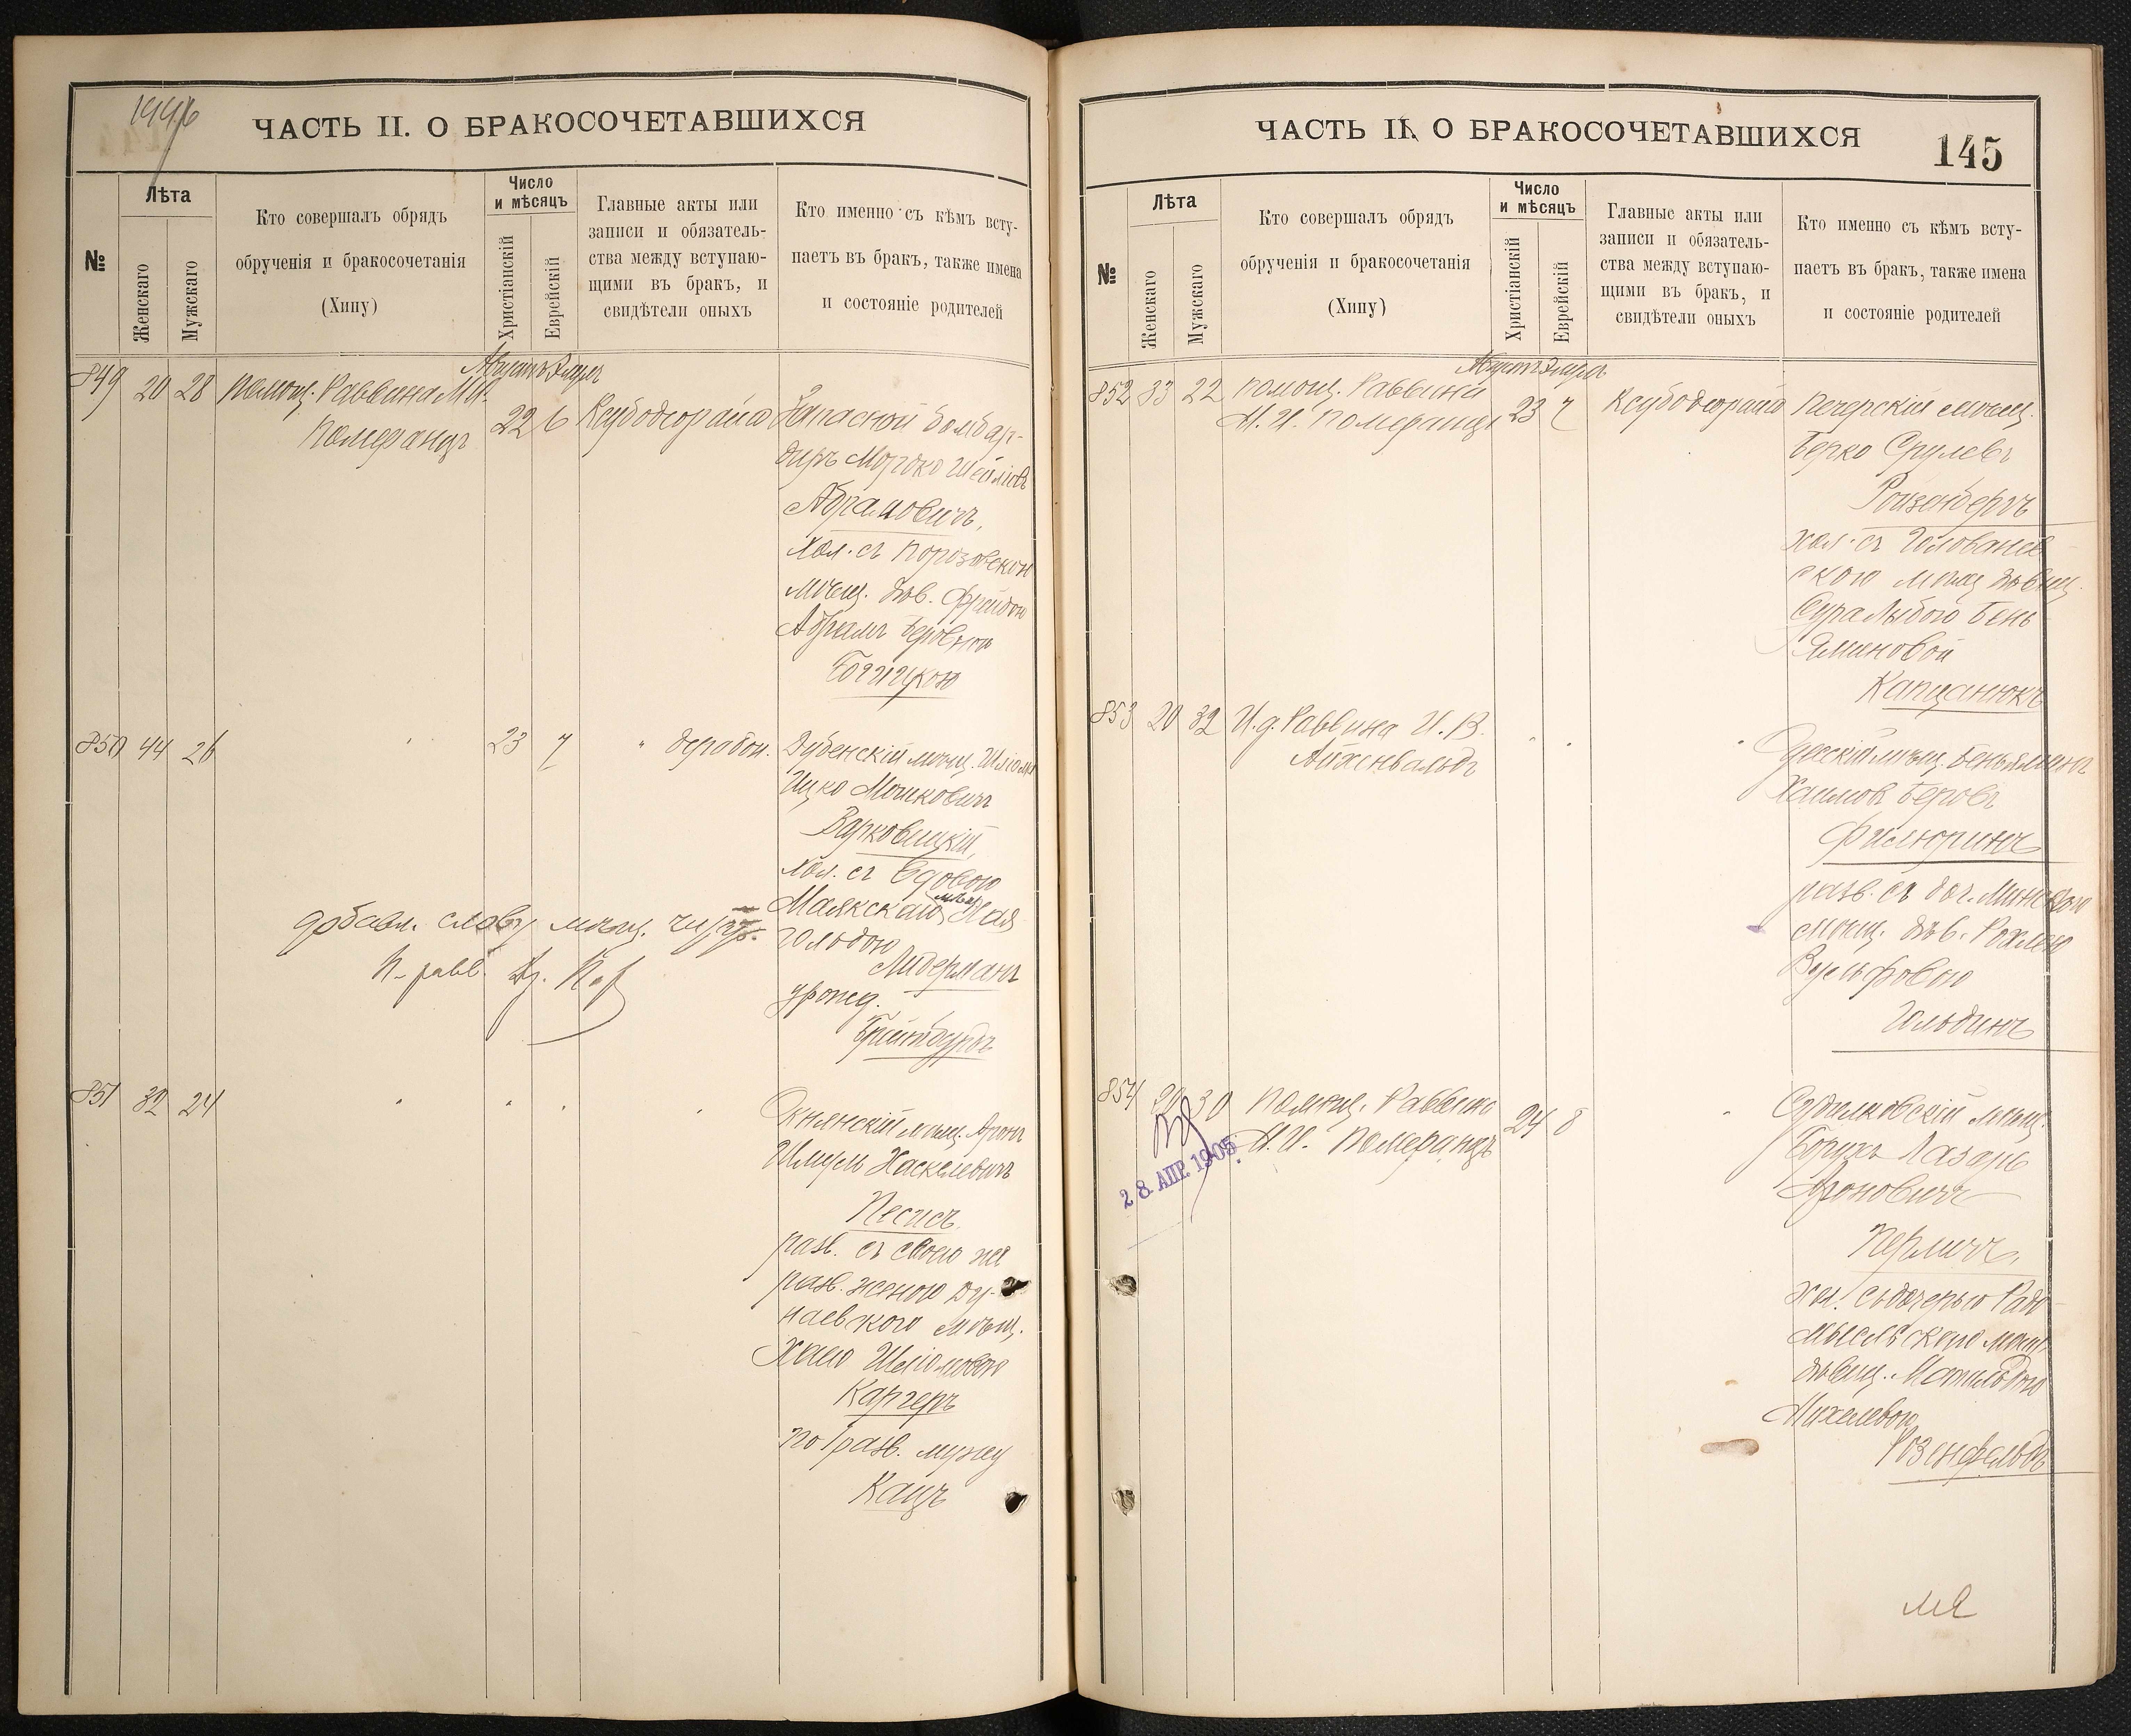 1996
ЧАСТЬ II. О БРАКОСОЧЕТАВШИХСЯ
№
Лѣта
Женскаго
Мужскаго
Кто совершалъ обрядъ
обрученія и бракосочетанія
(Хипу)
Число
и мѣсяцъ
Христіанскій
Еврейскій
Главные акты или
записи и обязатель-
ства между вступаю-
щими въ бракъ, и
свидѣтели оныхъ
Кто именно съ кѣмъ всту-
паетъ въ бракъ, также имена
и состояніе родителей
Августъ Элулъ
849 20 28 Помощ. Раввина М. И.
Померанцъ
22 6 Ксубодеорайсо
Запасной бомбар-
диръ Мордко Шейлiовъ
Абрамовичъ,
хол. съ Порозовскою
мѣщ. дѣв. Фрейдою
Абрамъ Беровною
850 44 26 " 23 7 " дерабон.
Дубенскій мѣщ. Шліома
Ицко Мошковичъ
Варковицкій,
хол. съ вдовою
Маякскаго мѣщ. Хая
Гольдою
Лидерманъ
урожд.
добавл. слову мѣщ.
П. равв.
851 32 24 " " " "
мѣщ. Аронъ
Шмуль Хаскелевичъ
Песисъ
разв. съ своею же
разв. женою Ду-
наевского мѣщ.
Хаею Шліомовою
Каргеръ
по разв. мужу
Кацъ
ЧАСТЬ II. О БРАКОСОЧЕТАВШИХСЯ
145
№
Лѣта
Женскаго
Мужскаго
Кто совершалъ обрядъ
обрученія и бракосочетанія
(Хипу)
Число
и мѣсяцъ
Христіанскій
Еврейскій
Главные акты или
записи и обязатель-
ства между вступаю-
щими въ бракъ, и
свидѣтели оныхъ
Кто именно съ кѣмъ всту-
паетъ въ бракъ, также имена
и состояніе родителей
Августъ Элулъ
852 33 22 Помощ. Раввина
М. И. Померанцъ
23 7 Ксубодеорайсо
Печерскій мѣщ.
Берко Срулевъ
Ройзенбергъ
хол. съ Голованев
ского мѣщ. дѣвиц.
Сура Лыбою Бень
яминовой
Капцанюкъ
853 20 32 И. д. Раввина И. В.
Айхенвальдъ
" " "
Одесскій мѣщ. Беньяминъ
Хаимовъ Беровъ
Филюринъ
разв. съ доч. Минского
мѣщ. дѣв. Рахлею
Вульфовою
Гольдинъ
854 20 30 Помощ. Раввина
М. И. Померанцъ
24 8 "
28 АПР. 1905
Судилковскій мѣщ.
Борухъ Лазарь
Ароновичъ
Перличъ,
хол. съ дочерью Радо
мысльского мѣщ.
дѣвиц. Матильдою
Михелевою
Розенфельдъ